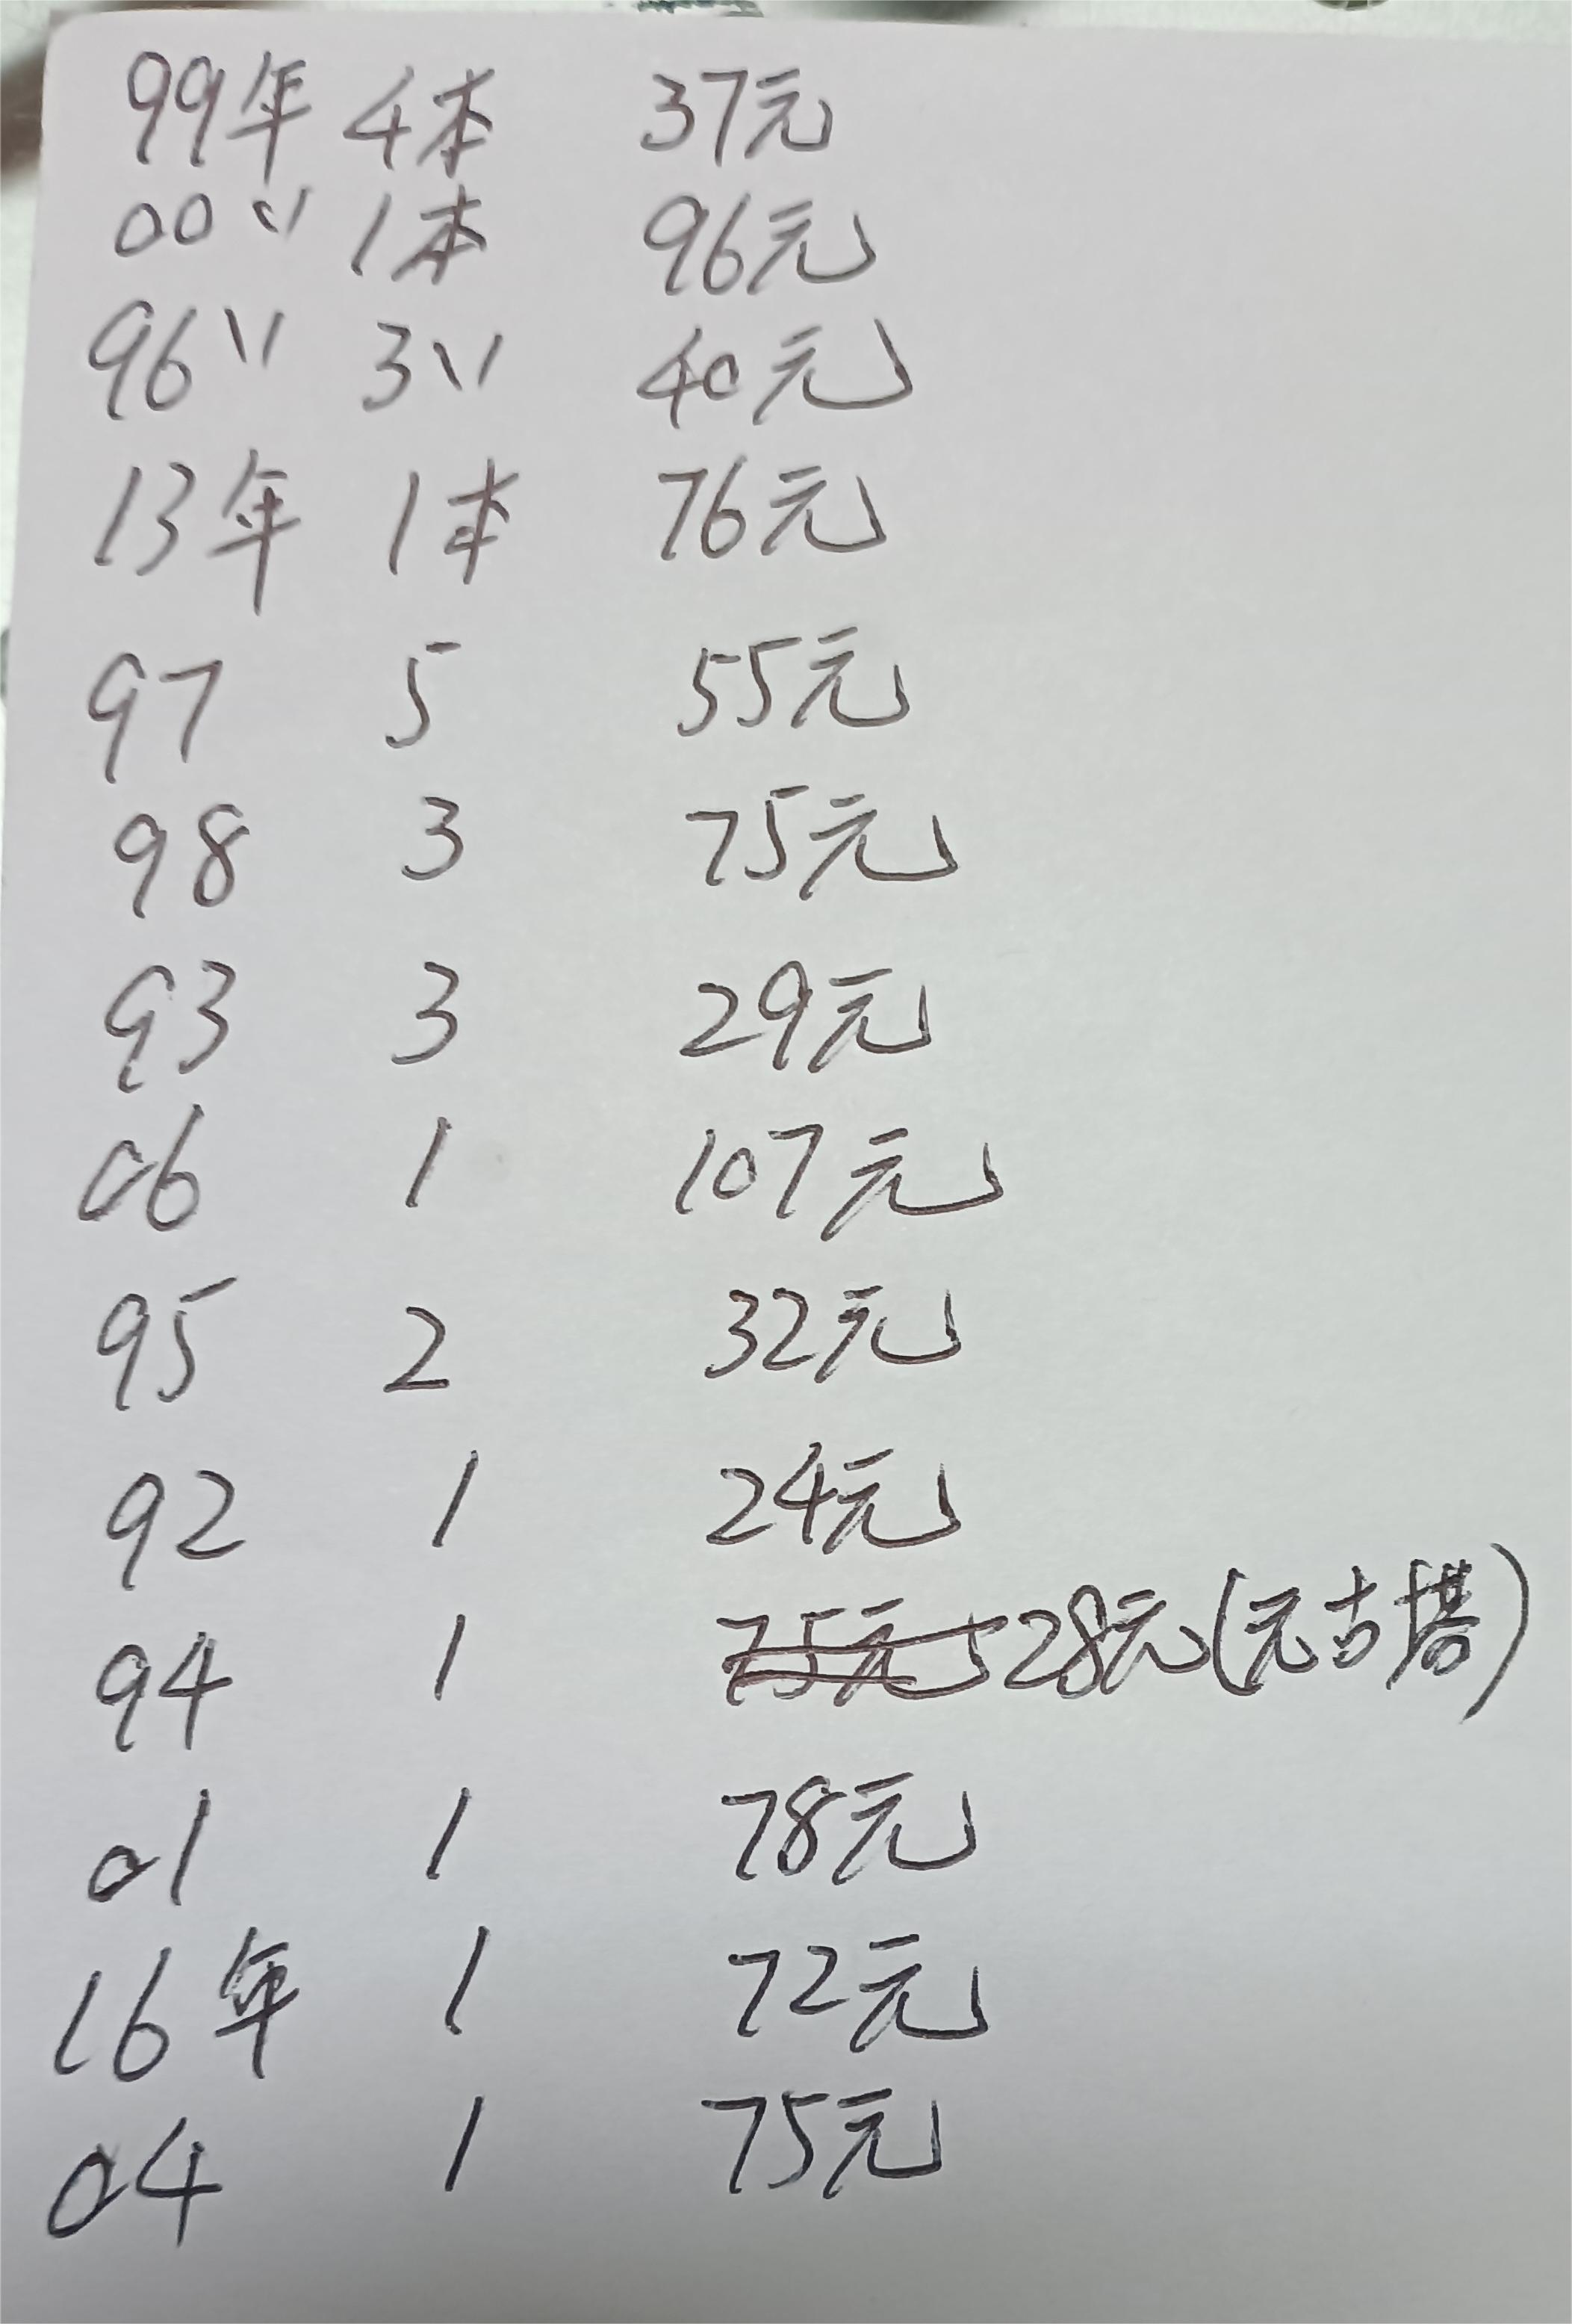 99年 4本 37元
00〃 1本 96元
96〃 3〃 40元
13年 1本 76元
97 5 55元
98 3 75元
93 3 29元
06 1 107元
95 2 32元
92 1 24元
94 1 75元 28元(元古塔)
01 1 78元
16年 1 72元
04 1 75元